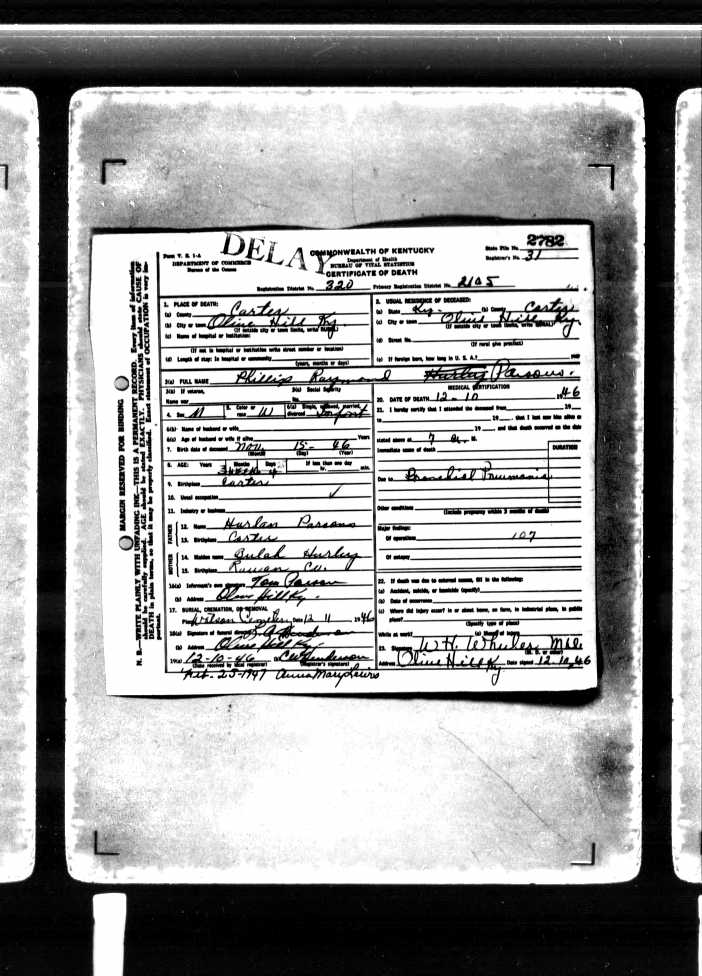 DELAY
Form V. S. 1-A
DEPARTMENT OF COMMERCE
Bureau of the Census
COMMONWEALTH OF KENTUCKY
Department of Health
BUREAU OF VITAL STATISTICS
CERTIFICATE OF DEATH
State File No. 2782
Registrar's No. 31
Registration District No. 320 Primary Registration District No. 2105
MARGIN RESERVED FOR BINDING
N. B.—WRITE PLAINLY WITH UNFADING INK—THIS IS A PERMANENT RECORD. Every item of information
should be carefully supplied. AGE should be stated EXACTLY. PHYSICIANS should state CAUSE OF
DEATH in plain terms, so that it may be properly classified. Exact statement of OCCUPATION is very im-
portant.
1. PLACE OF DEATH:
(a) County Carter
(b) City or town Olive Hill Ky
(If outside city or town limits, write RURAL)
(c) Name of hospital or institution:
(If not in hospital or institution write street number or location)
(d) Length of stay: In hospital or community
(years, months or days)
2. USUAL RESIDENCE OF DECEASED:
(a) State Ky. (b) County Carter
(c) City or town Olive Hill Ky
(If outside city or town limits, write RURAL)
(d) Street No.
(If rural give precinct)
(e) If foreign born, how long in U. S. A.?
3(a) FULL NAME Phillip Raymond Hurley Parsons.
3(b) If veteran,
Name war
3(c) Social Security
No.
4. Sex M 5. Color or race W 6(a) Single, widowed, married, divorced Infant
6(b) Name of husband or wife
6(c) Age of husband or wife if alive Years
7. Birth date of deceased Nov. 15- 46
(Month) (Day) (Year)
8. AGE: Years Months Days If less than one day
3 weeks 4 hr. min.
9. Birthplace Carter
10. Usual occupation
11. Industry or business
FATHER
12. Name Hurlan Parsons
13. Birthplace Carter
MOTHER
14. Maiden name Bulah Hurley
15. Birthplace Rowan Co.
16(a) Informant's own signature Tom Parson
(b) Address Olive Hill Ky.
17. BURIAL, CREMATION, OR REMOVAL
Place Watson Cemetery Date 12 11 1946
18(a) Signature of funeral director Henderson
(b) Address Olive Hill Ky
19(a) 12-10-46 (b) C W Henderson
(Date received by local registrar) (Registrar's signature)
Feb. 25-1947 Anna Mary Lewis
MEDICAL CERTIFICATION
20. DATE OF DEATH 12-10 1946
21. I hereby certify that I attended the deceased from 19
to 19 , that I last saw him alive on
19 , and that death occurred on the date
stated above at 7 a. M.
DURATION
Immediate cause of death
Due to Bronchial Pneumonia
Other conditions
(Include pregnancy within 3 months of death)
Major findings:
Of operations 107
Of autopsy
22. If death was due to external causes, fill in the following:
(a) Accident, suicide, or homicide (specify)
(b) Date of occurrence
(c) Where did injury occur? In or about home, on farm, in industrial place, in public
place?
(Specify type of place)
While at work? (e) Means of injury
23. Signature W H. Wheeler M.D.
(M. D. or other)
Address Olive Hill Ky Date signed 12-10,46